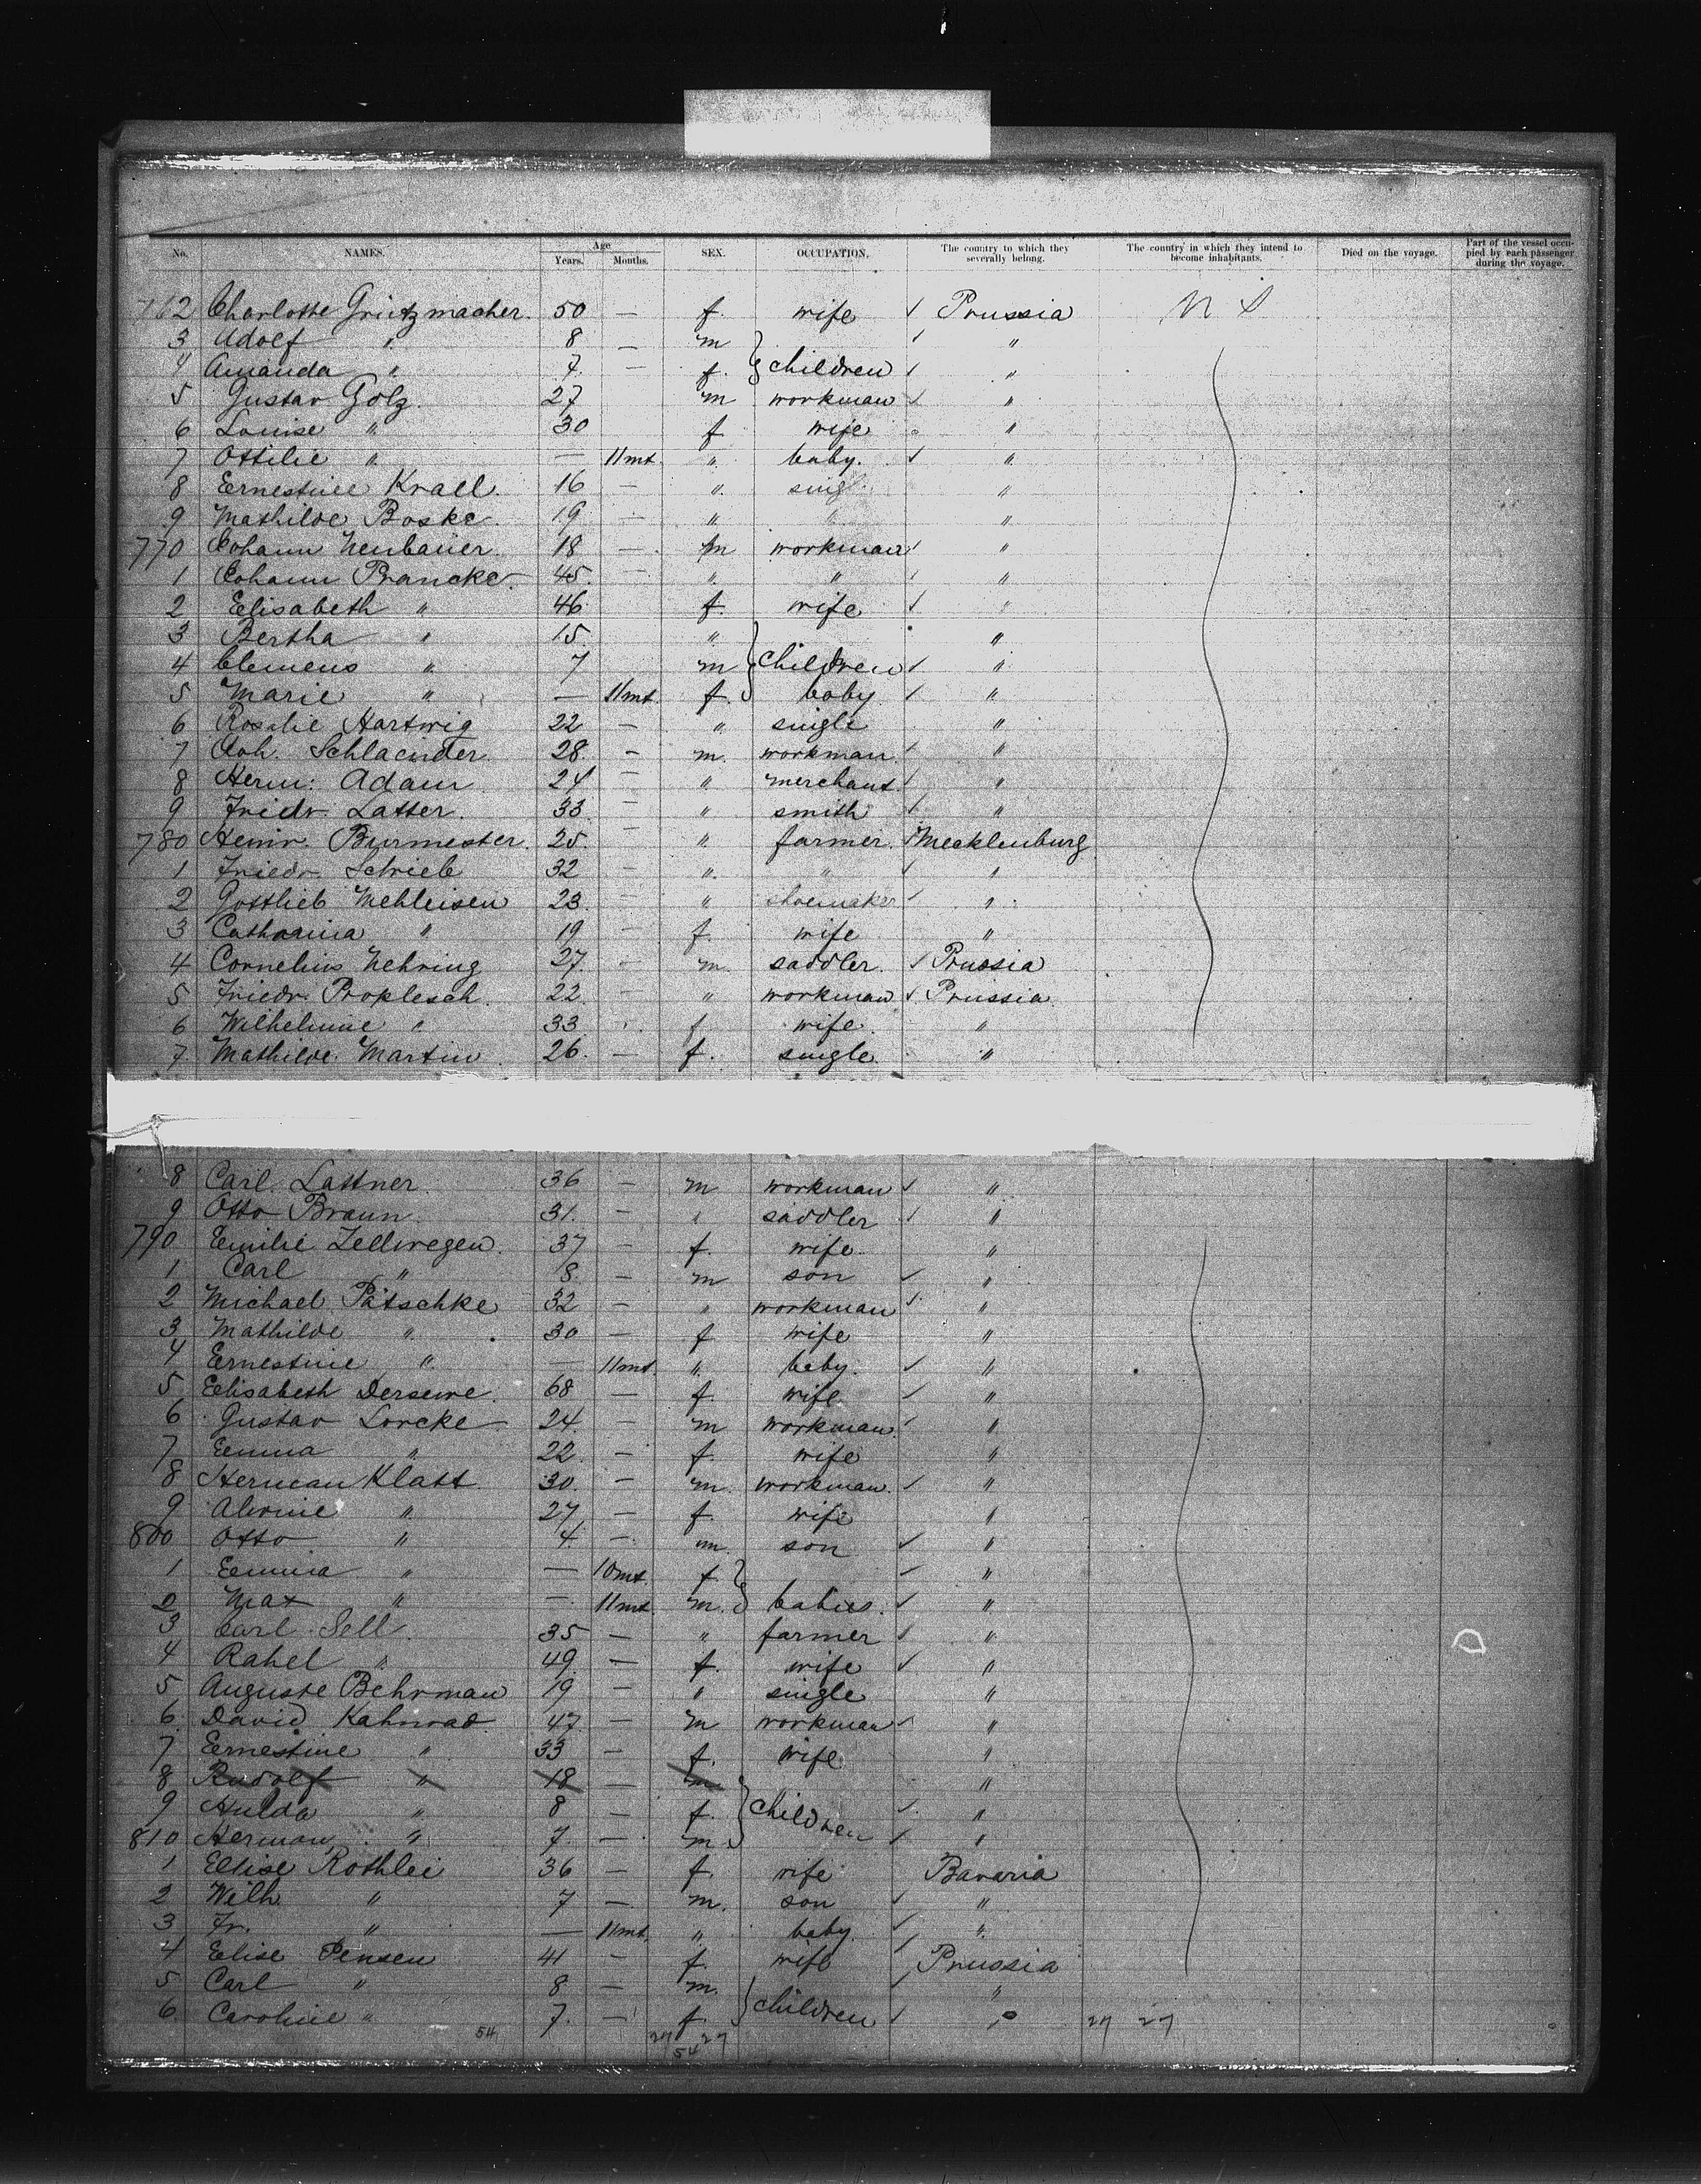 No. NAMES. Age Years. Months. SEX. OCCUPATION. The country to which they severally belong. The country in which they intend to become inhabitants. Died on the voyage. Part of the vessel occupied by each passenger during the voyage.
762 Charlotte Grützmacher. 50 — f. wife ✓ Prussia
3 Adolf " 8 — m ✓ "
4 Amanda " 7. — f. } children ✓ "
5 Gustav Golz. 27 m workman ✓ "
6 Louise " 30 f wife "
7 Ottilie " — 11mt. " baby. ✓ "
8 Ernestine Krall. 16 — " singl "
9 Mathilde Boske. 19 — " " "
770 Johann Neubauer. 18 — m workman ✓ "
1 Johann Prancke. 45. — " " ✓ "
2 Elisabeth " 46. f. wife ✓ "
3 Bertha " 15. " "
4 Clemens " 7 m } children ✓ "
5 Marie " — 11mt. f. baby ✓ "
6 Rosalie Hartwig 22 — " single "
7 Joh. Schlacinder 28. — m. workman. ✓ "
8 Herm: Adam 24 — " merchant. ✓ "
9 Friedr. Latter. 33. — " smith ✓ "
780 Heinr. Burmester. 25. — " farmer. ✓ Mecklenburg
1 Friedr. Schrieb 32 — " " ✓ "
2 Gottlieb Mehleisen 23. — " shoemaker ✓ "
3 Catharina " 19 — f. wife "
4 Cornelius Nehring 27. — m. saddler. ✓ Prussia
5 Friedr. Proplesch. 22. — " workman ✓ Prussia
6 Wilhelmine " 33 f wife. "
7. Mathilde Martin 26. — f. single. "
8 Carl Lattner. 36 — m workman ✓ "
9 Otto Braun. 31. — " saddler ✓ "
790 Emilie Zellwegen. 37 — f. wife. "
1 Carl " 8. — m son ✓ "
2 Michael Pätschke 32 — " workman ✓ "
3 Mathilde " 30 — f wife "
4 Ernestine " — 11mt. " baby. ✓ "
5 Elisabeth Dersewe. 68 — f. wife ✓ "
6 Gustav Lorcke 24. — m workman. ✓ "
7 Emma " 22. — f. wife "
8 Herman Klatt. 30. — m. workman. ✓ "
9 Alwine " 27 — f. wife "
800 Otto " 4. — m. son ✓ "
1 Emma " — 10mt. f. ✓ "
2 Max " — 11mt. m. } babies. ✓ "
3 Carl Sell. 35 — " farmer ✓ "
4 Rahel " 49. — f. wife ✓ "
5 Auguste Behrman 19 — " single "
6. David Kahnrad 47 — m workman ✓ "
7 Ernestine " 33 — f. wife "
8 Rudolf " 18 — m "
9 Hulda " 8 — f. } children ✓ "
810 Herman " 7. — m. ✓ "
1 Ellise Rothlei 36 — f. wife Bavaria
2 Wilh " 7 — m. son ✓ "
3 Fr. " — 11mt. " baby ✓ "
4 Elise Pensen 41 — f. wife ✓ Prussia
5 Carl " 8 — m. ✓ "
6. Caroline " 7. — f. } children ✓ " 27 27
54 27 27
54